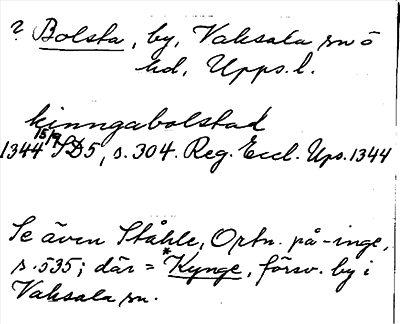 ? Bolsta, by, Vaksala sn o
hd, Upps. l.
kinngabolstad
1344 15/9 SD5, s. 304. Reg. Eccl. Ups. 1344
Se även Ståhle, Ortn. på -inge,
s. 535; där = *Kynge, försv. by i
Vaksala sn.